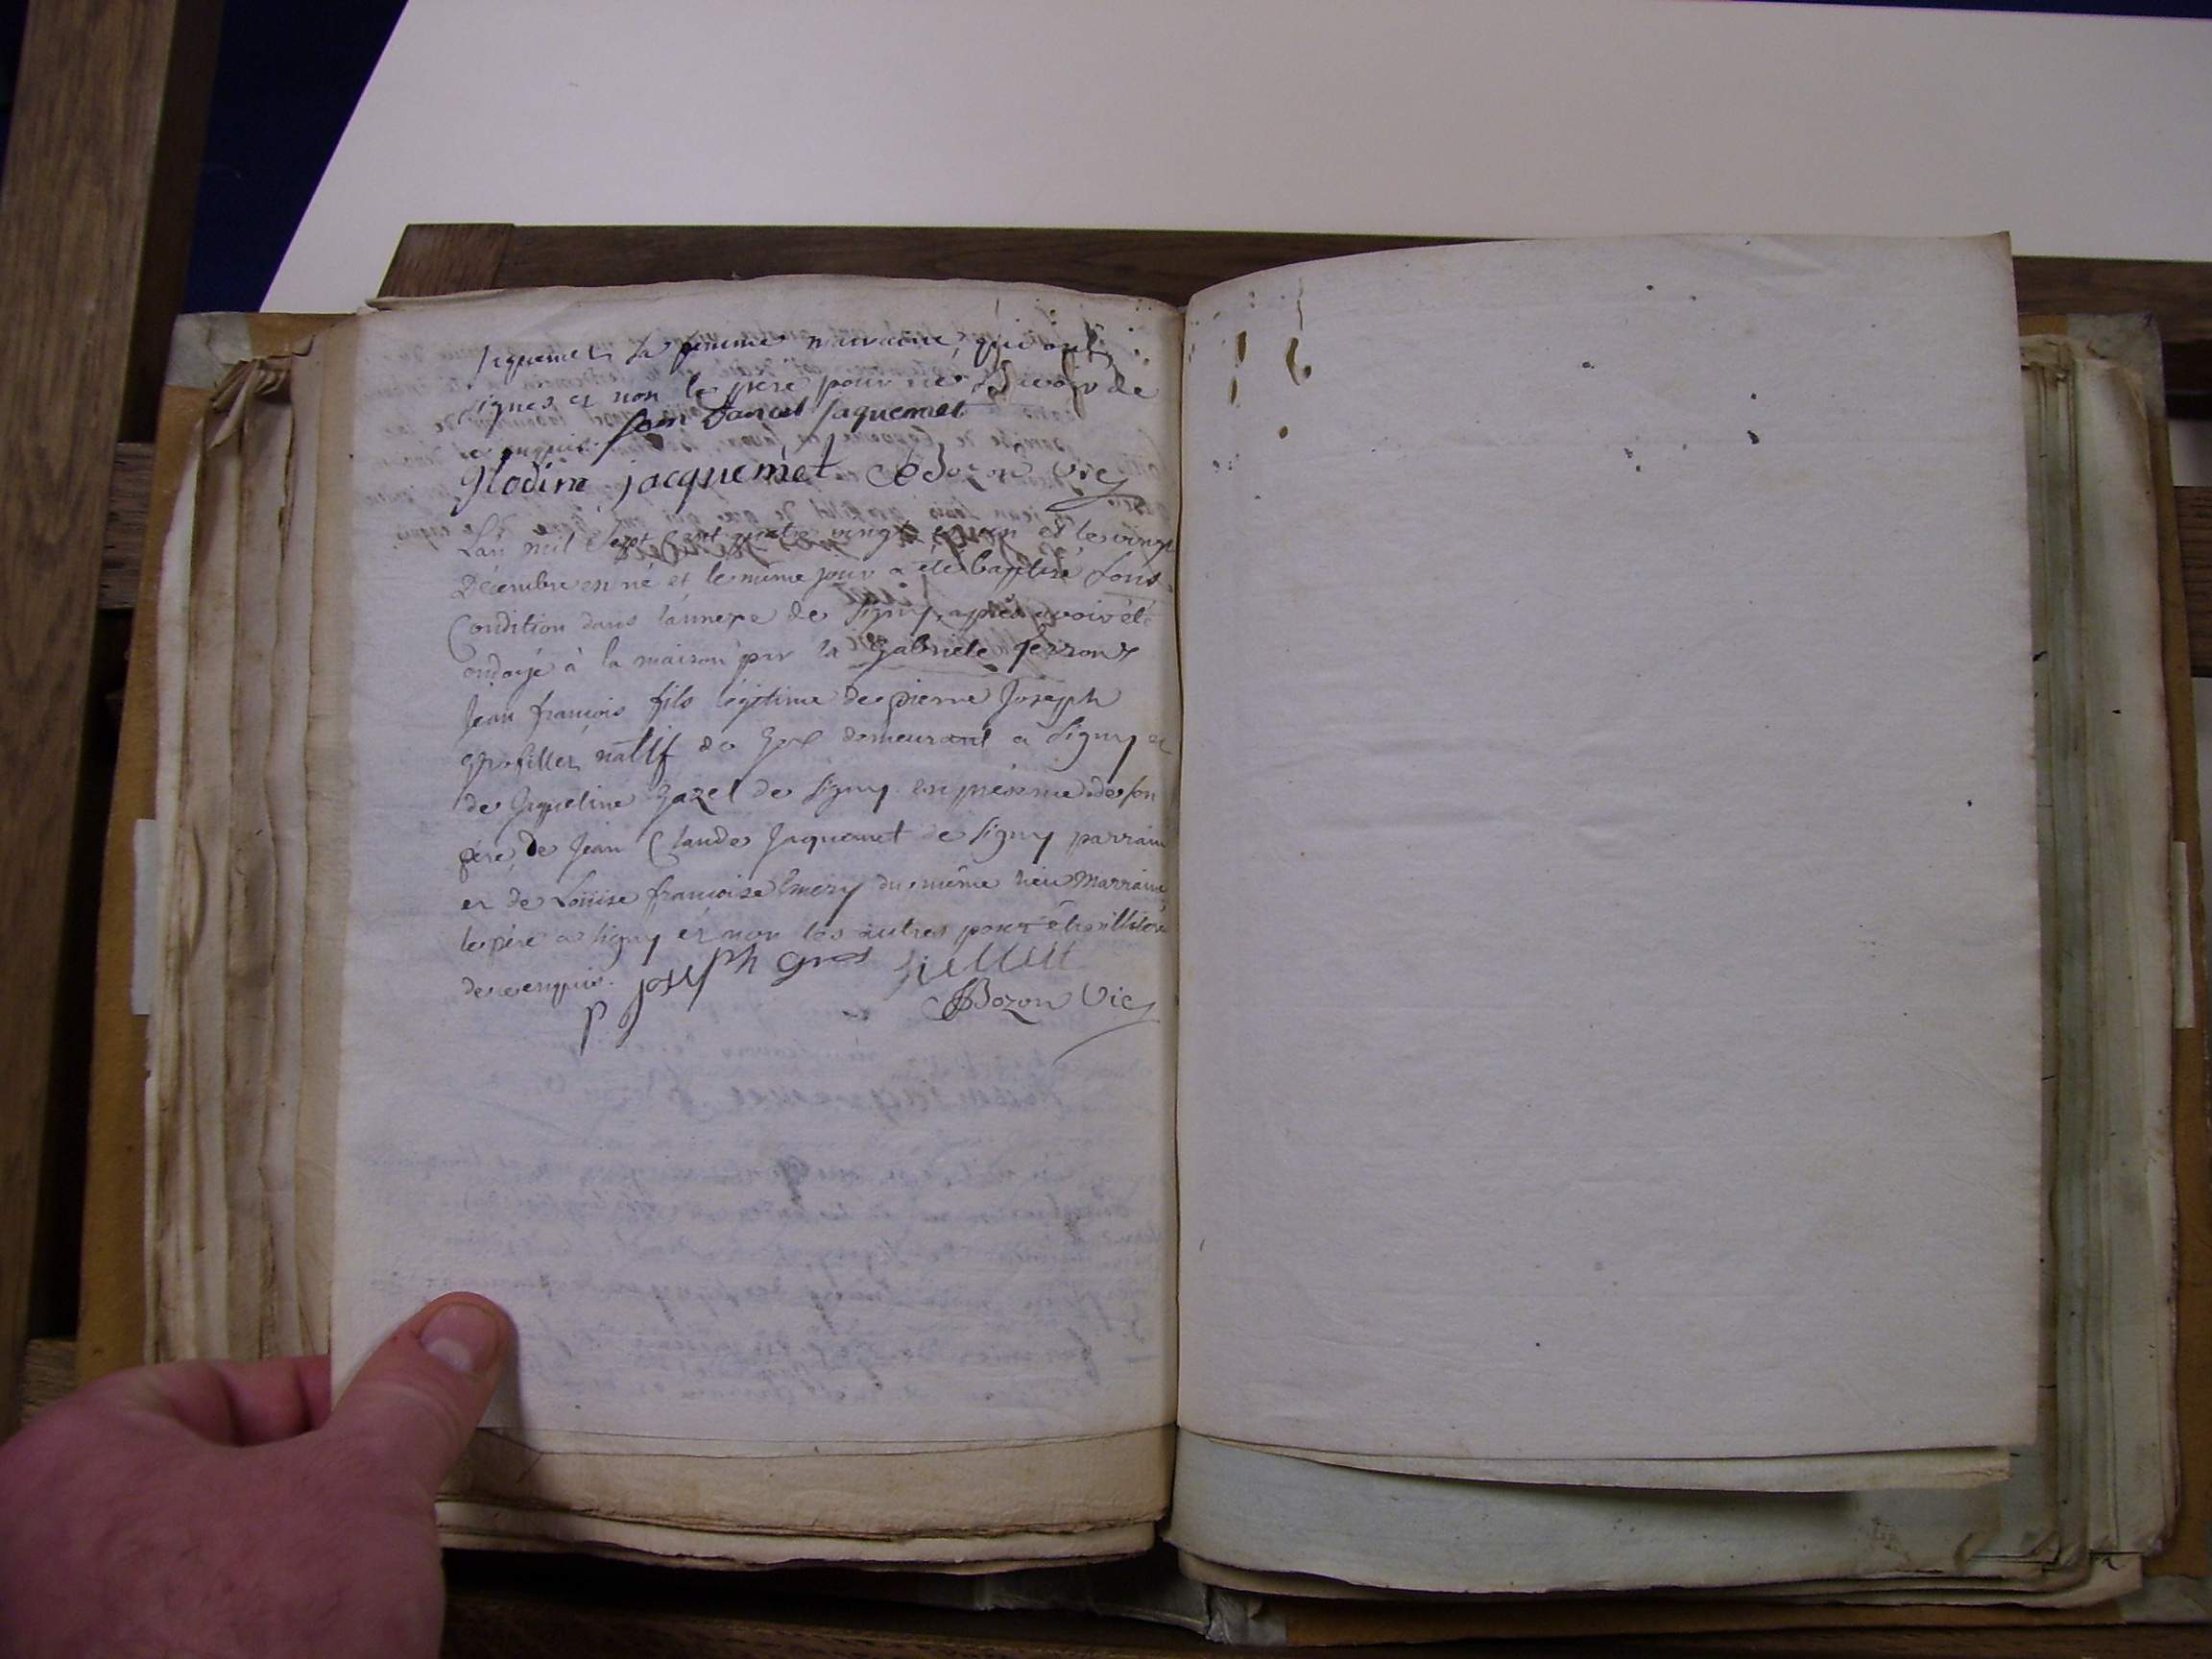 jaquemet sa femme marraine, qui ont
signés et non le père pour ne savoir de
ce enquis. Jean Daniel Jaquemet
Glodine jacquemet Bozon Vic
L'an mil sept cent quatre vingt et un et le vingt
Décembre est né et le même jour a été baptisé sous
Condition dans l'annexe de Signy, après avoir été
ondoyé à la maison par la Gabriele perron
Jean françois fils légitime de pierre Joseph
grosfillex natif de Gex demeurant a Signy et
de Jaqueline Gazel de Signy en présence de son
père, de Jean Claude Jaquemet de Signy parrain
et de Loüise françoise Emery du même lieu Marraine
le père a signé et non les autres pour être illiterés
de ce enquis. p joseph gros fielliett
Bozon Vic